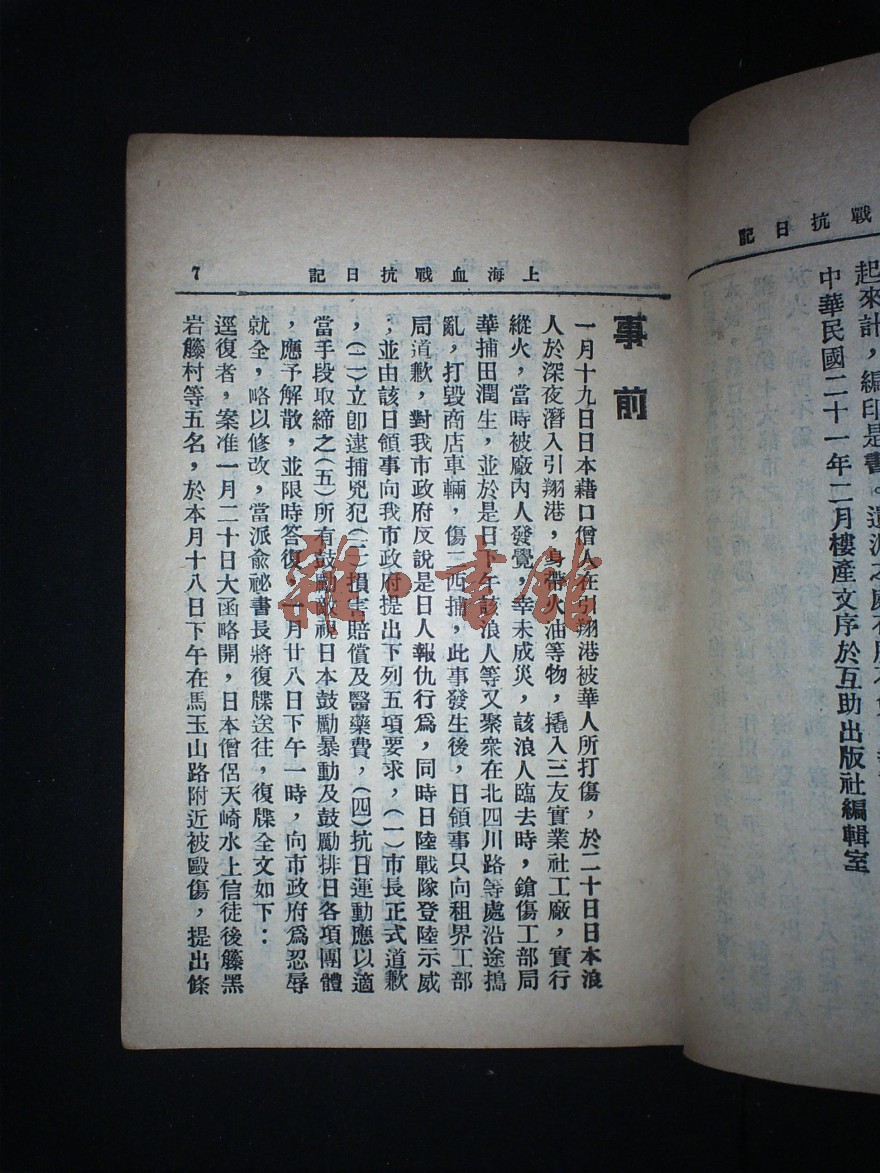 戰抗日記
起來計，編印是書。遺
中華民國二十一年二月樓產文序於互助出版社編輯室
上海血戰抗日記
7
事前
一月十九日日本藉口僧人在引翔港被華人所打傷，於二十日日本浪
人於深夜潛入引翔港，身帶火油等物，撬入三友實業社工廠，實行
縱火，當時被廠內人發覺，幸未成災，該浪人臨去時，鎗傷工部局
華捕田潤生，並於是日下午該浪人等又聚衆在北四川路等處沿途搗
亂，打毀商店車輛，傷三西捕，此事發生後，日領事只向租界工部
局道歉，對我市政府反說是日人報仇行爲，同時日陸戰隊登陸示威
，並由該日領事向我市政府提出下列五項要求，（一）市長正式道歉
，（二）立卽逮捕兇犯（三）損害賠償及醫藥費，（四）抗日運動應以適
當手段取締之（五）所有鼓勵敵視日本鼓勵暴動及鼓勵排日各項團體
，應予解散，並限時答復，一月廿八日下午一時，向市政府爲忍辱
就全，略以修改，當派俞祕書長將復牒送往，復牒全文如下：
逕復者，案准一月二十日大函略開，日本僧侶天崎水上信徒後籐黑
岩籐村等五名，於本月十八日下午在馬玉山路附近被毆傷，提出條
雜·書館